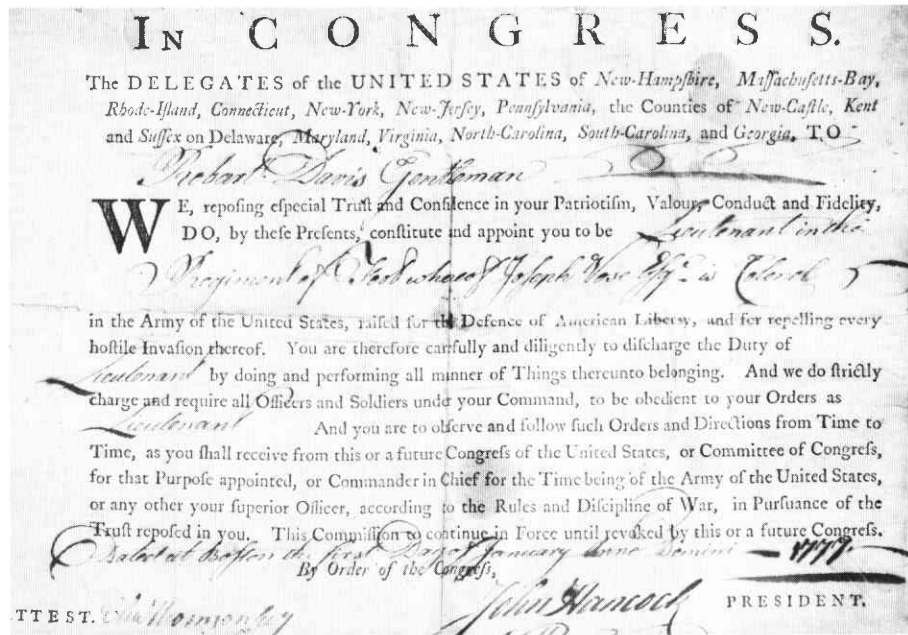 IN CONGRESS.
The DELEGATES of the UNITED STATES of New-Hampſhire, Maſſachuſetts-Bay,
Rhode-Iſland, Connecticut, New-York, New-Jerſey, Pennſylvania, the Counties of New-Caſtle, Kent
and Suſſex on Delaware, Maryland, Virginia, North-Carolina, South-Carolina, and Georgia, TO
Robart Davis Gentleman
WE, repoſing eſpecial Truſt and Confidence in your Patriotiſm, Valour, Conduct and Fidelity,
DO, by theſe Preſents, conſtitute and appoint you to be Lieutenant in the
Regiment of Foot whereof Joſeph Vose Eſqr. is Colonel
in the Army of the United States, raiſed for the Defence of American Liberty, and for repelling every
hoſtile Invaſion thereof. You are therefore carefully and diligently to diſcharge the Duty of
Lieutenant by doing and performing all manner of Things thereunto belonging. And we do ſtrictly
charge and require all Officers and Soldiers under your Command, to be obedient to your Orders as
Lieutenant And you are to obſerve and follow ſuch Orders and Directions from Time to
Time, as you ſhall receive from this or a future Congreſs of the United States, or Committee of Congreſs,
for that Purpoſe appointed, or Commander in Chief for the Time being of the Army of the United States,
or any other your ſuperior Officer, according to the Rules and Diſcipline of War, in Purſuance of the
Truſt repoſed in you. This Commiſſion to continue in Force until revoked by this or a future Congreſs.
Dated at Boſton the first Day of January Anno Domini 1777.
By Order of the Congreſs,
John Hancock PRESIDENT.
TTEST.